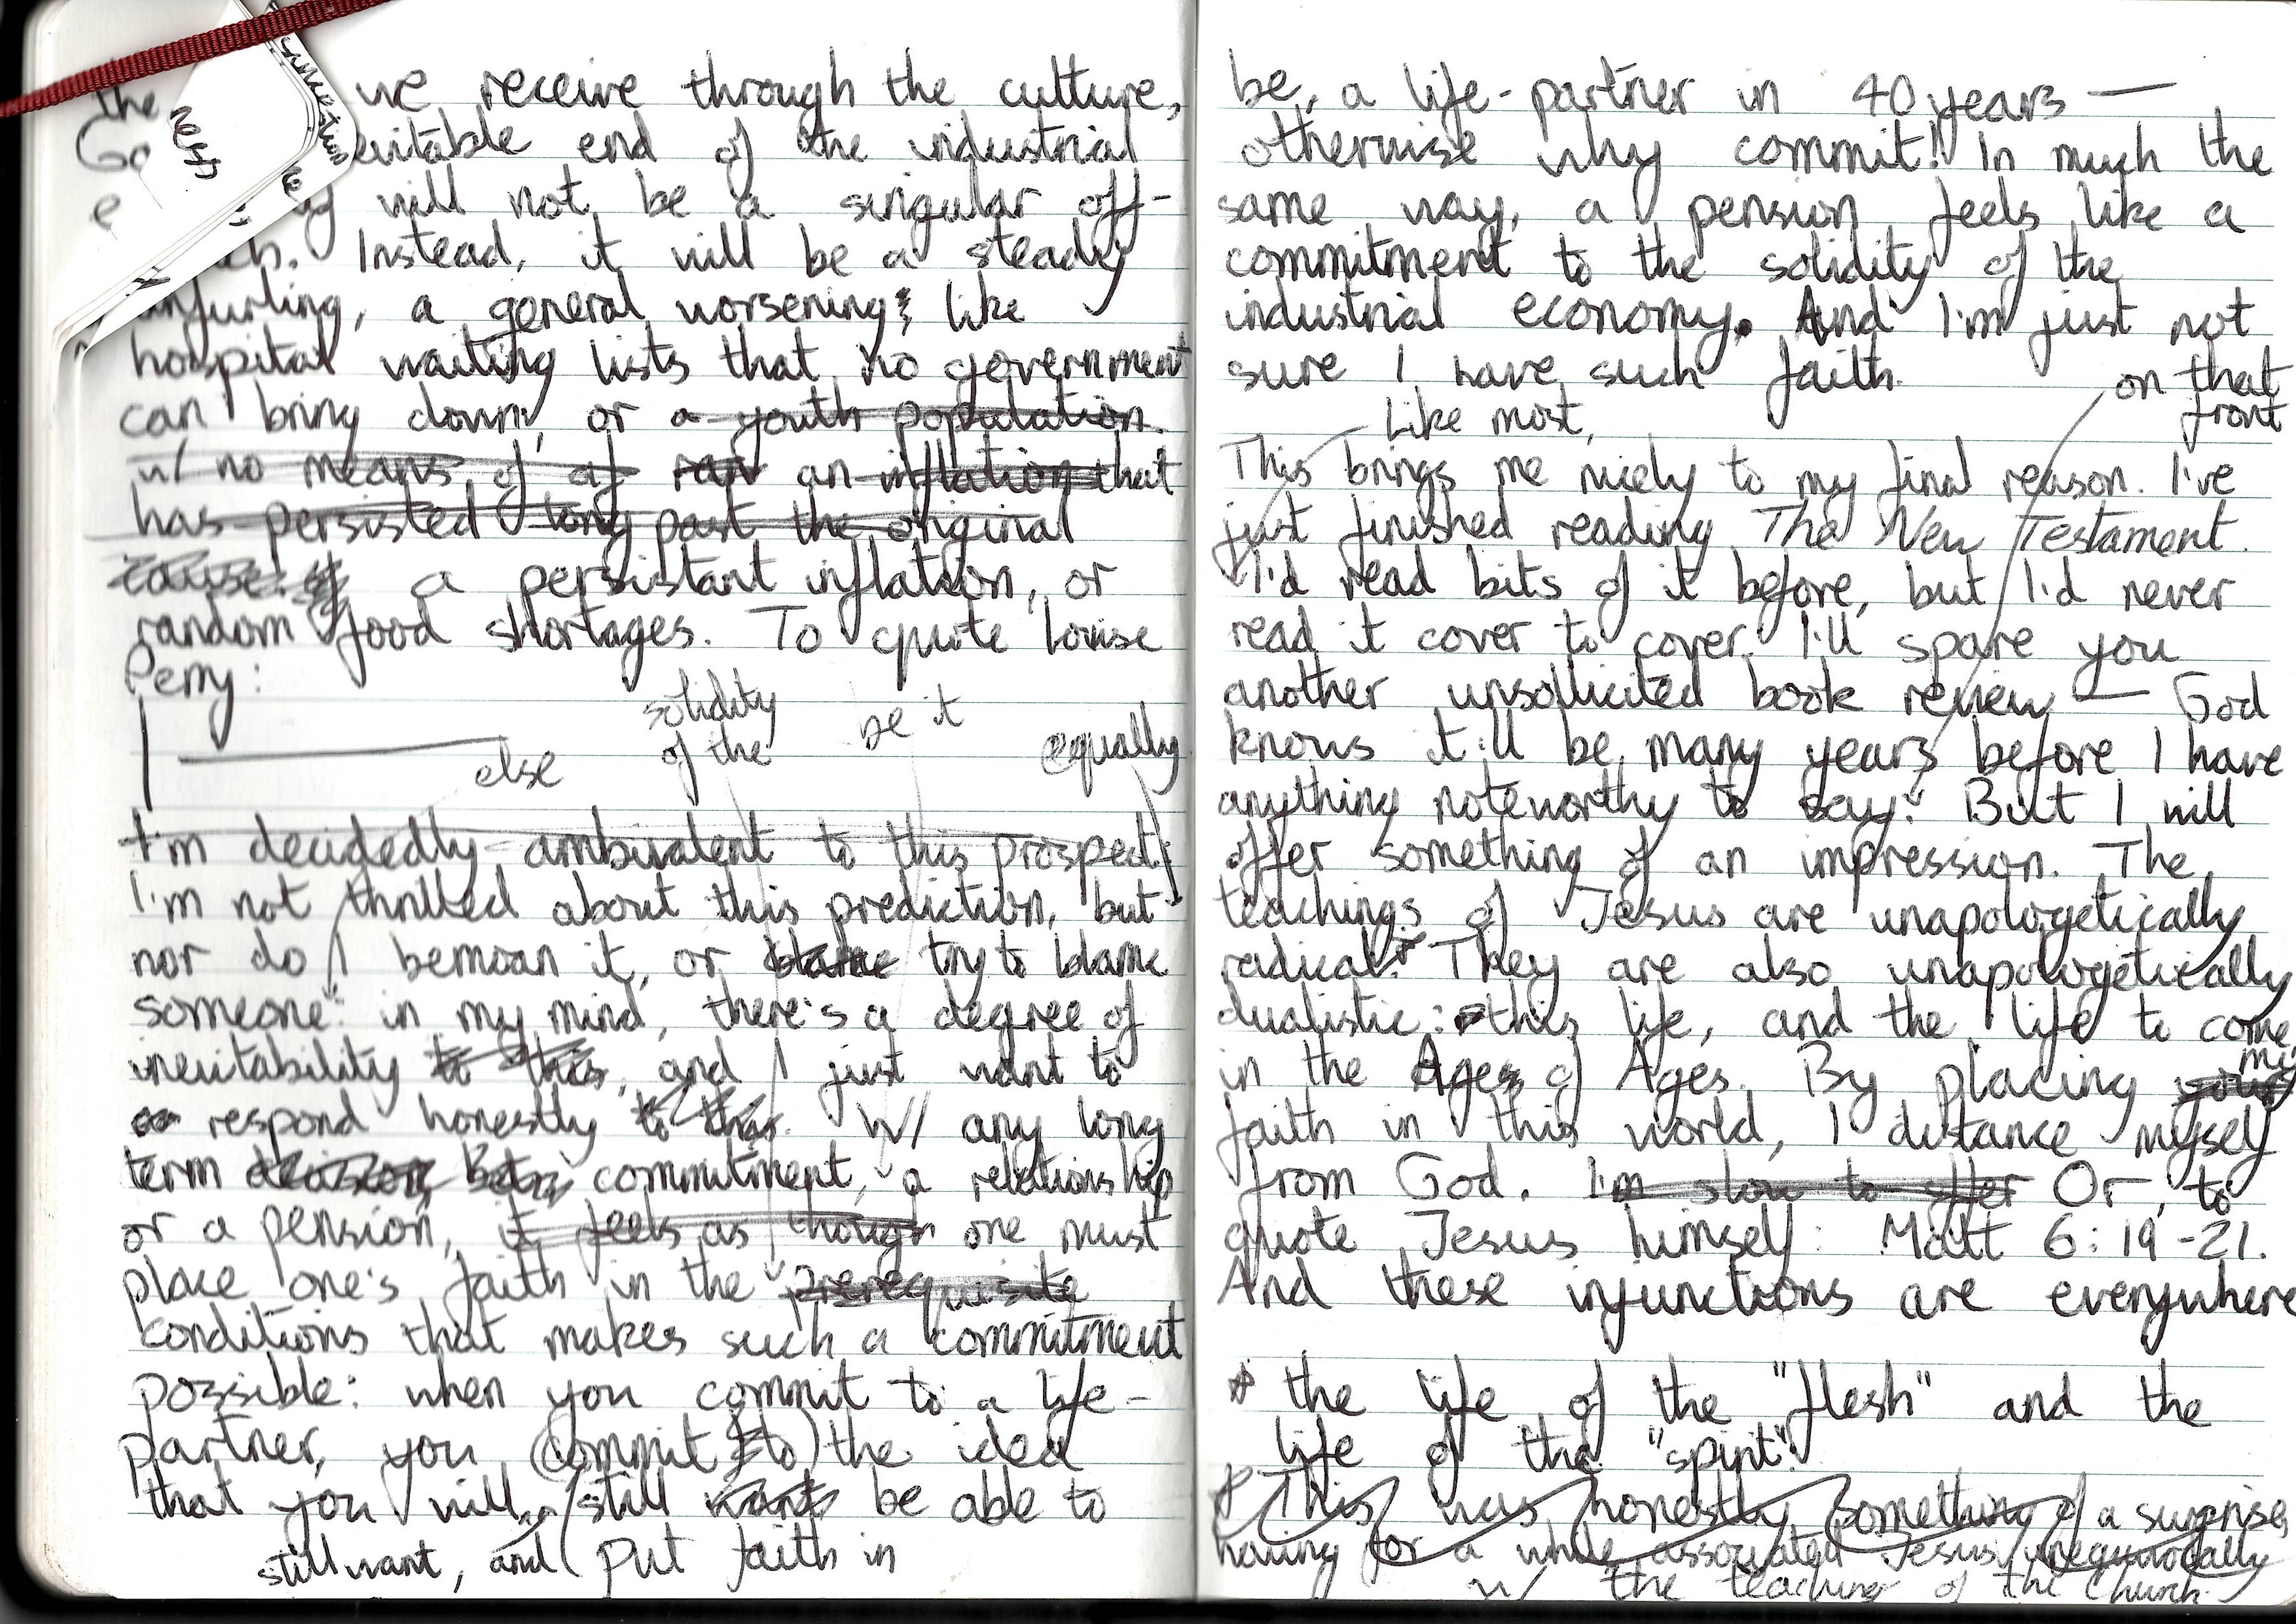 the we receive through the culture,
evitable end of the industrial
will not be a singular off-
Instead, it will be a steady
unfurling, a general worsening; like
hospital waiting lists that no government
can bring down, or a youth population.
w/ no means of an inflation that
has persisted long past the original
cause. a persistant inflation, or
random food shortages. To quote Louise
Perry:
solidity
of the
be it
equally
else
I'm decidedly ambivalent to this prospect;
I'm not thrilled about this prediction, but
nor do I bemoan it, or blame try to blame
someone: in my mind, there's a degree of
inevitability to this, and I just want to
respond honestly to this. W/ any long
term decision commitment, a relationship
or a pension, it feels as though one must
place one's faith in the prerequisite
conditions that makes such a commitment
possible: when you commit to a life-
partner, you (commit to) the idea
that you will still want be able to
still want, and put faith in
the
left
be, a life-partner in 40 years —
otherwise why commit! In much the
same way, a pension feels like a
commitment to the solidity of the
industrial economy. And I'm just not
sure I have such faith.
on that
front
Like most,
This brings me nicely to my final reason. I've
just finished reading The New Testament.
I'd read bits of it before, but I'd never
read it cover to cover. I'll spare you
another unsollicited book review — God
knows it'll be many years before I have
anything noteworthy to say. But I will
offer something of an impression. The
teachings of Jesus are unapologetically
radical. They are also unapologetically
dualistic: this life, and the life to come,
in the Ages of Ages. By placing your
my
faith in this world, I distance myself
from God. I'm slow to offer Or, to
quote Jesus himself: Matt 6:19-21.
And these injunctions are everywhere
* the life of the "flesh" and the
life of the "spirit".
This was honestly something of a surprise,
having for a while associated Jesus unequivocally
w/ the teaching of the Church.